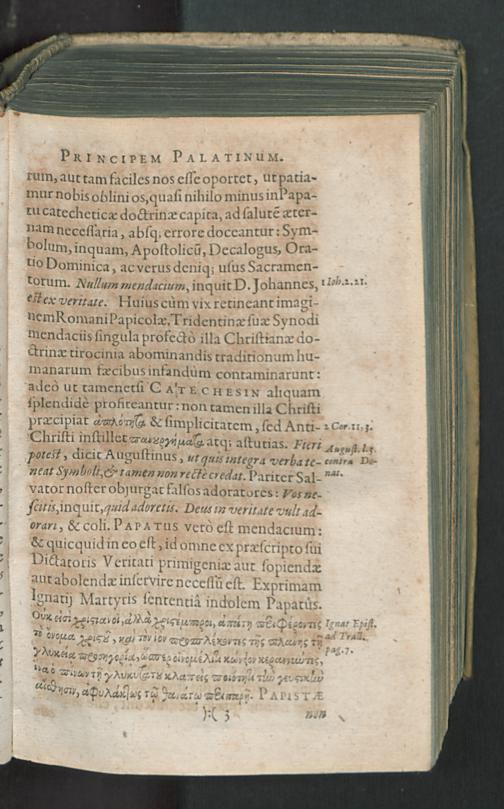 PRINCIPEM PALATINUM.
rum, aut tam faciles nos esse oportet, ut patia-
mur nobis oblini os, quasi nihilo minus in Papa-
tu catecheticæ doctrinæ capita, ad salutē æter-
nam necessaria, absq; errore doceantur: Sym-
bolum, inquam, Apostolicū, Decalogus, Ora-
tio Dominica, ac verus deniq; usus Sacramen-
torum. Nullum mendacium, inquit D. Johannes, 1 Ioh. 2. 21.
est ex veritate. Huius cùm vix retineant imagi-
nem Romani Papicolæ, Tridentinæ suæ Synodi
mendaciis singula profectò illa Christianæ do-
ctrinæ tirocinia abominandis traditionum hu-
manarum fæcibus infandùm contaminarunt:
adeò ut tametsi CATECHESIN aliquam
splendidè profiteantur: non tamen illa Christi
præcipiat ἁπλότητα & simplicitatem, sed Anti- 2 Cor. 11, 3.
Christi instillet πανουργήματα atq; astutias. Fieri
potest, dicit Augustinus, ut quis integra verba te- August. l. 5. contra Do-
neat Symboli, & tamen non rectè credat. Pariter Sal- nat.
vator noster objurgat falsos adoratores: Vos ne-
scitis, inquit, quid adoretis. Deus in veritate vult ad-
orari, & coli. PAPATUS verò est mendacium:
& quicquid in eo est, id omne ex præscripto sui
Dictatoris Veritati primigeniæ aut sopiendæ
aut abolendæ inservire necessū est. Exprimam
Ignatij Martyris sententiâ indolem Papatus.
Οὐκ εἰσὶ χριστιανοὶ, ἀλλὰ χριστέμποροι, ἀπάτῃ περιφέροντες Ignat Epist.
τὸ ὄνομα χριστοῦ, καὶ τὸν ἰὸν προσπλέκοντες τῆς πλάνης τῇ ad Trall.
γλυκείᾳ προσηγορίᾳ, ὥσπερ οἰνομέλιτι κώνειον κεραννῦντες, pag. 7.
ἵνα ὁ πίνων τῇ γλυκυτάτῃ κλαπεὶς ποιότητι τὴν γευστικὴν
αἴσθησιν, ἀφυλάκτως τῷ θανάτῳ περιπαρῇ. PAPISTÆ
):( 3 non